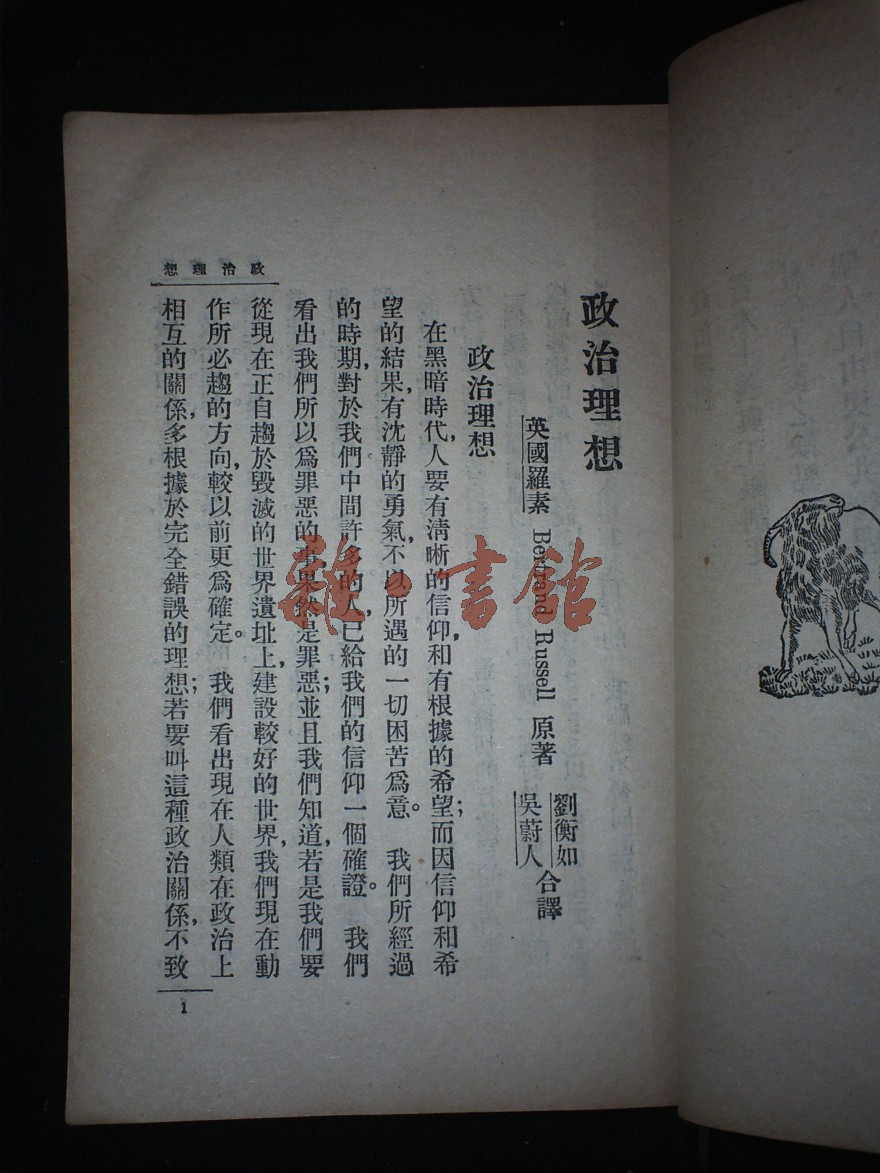 政治理想
英國羅素 Bertrand Russell 原著
劉衡如
吳蔚人
合譯
政治理想
在黑暗時代,人要有清晰的信仰,和有根據的希望;而因信仰和希
望的結果,有沈靜的勇氣,不以所遇的一切困苦爲意。我們所經過
的時期,對於我們中間許多的人,已給我們的信仰一個確證。我們
看出我們所以爲罪惡的事果然是罪惡;並且我們知道,若是我們要
從現在正自趨於毀滅的世界遺址上,建設較好的世界,我們現在動
作所必趨的方向,較以前更爲確定。我們看出現在人類在政治上
相互的關係,多根據於完全錯誤的理想;若要叫這種政治關係,不致
政治理想
1
雜·書館